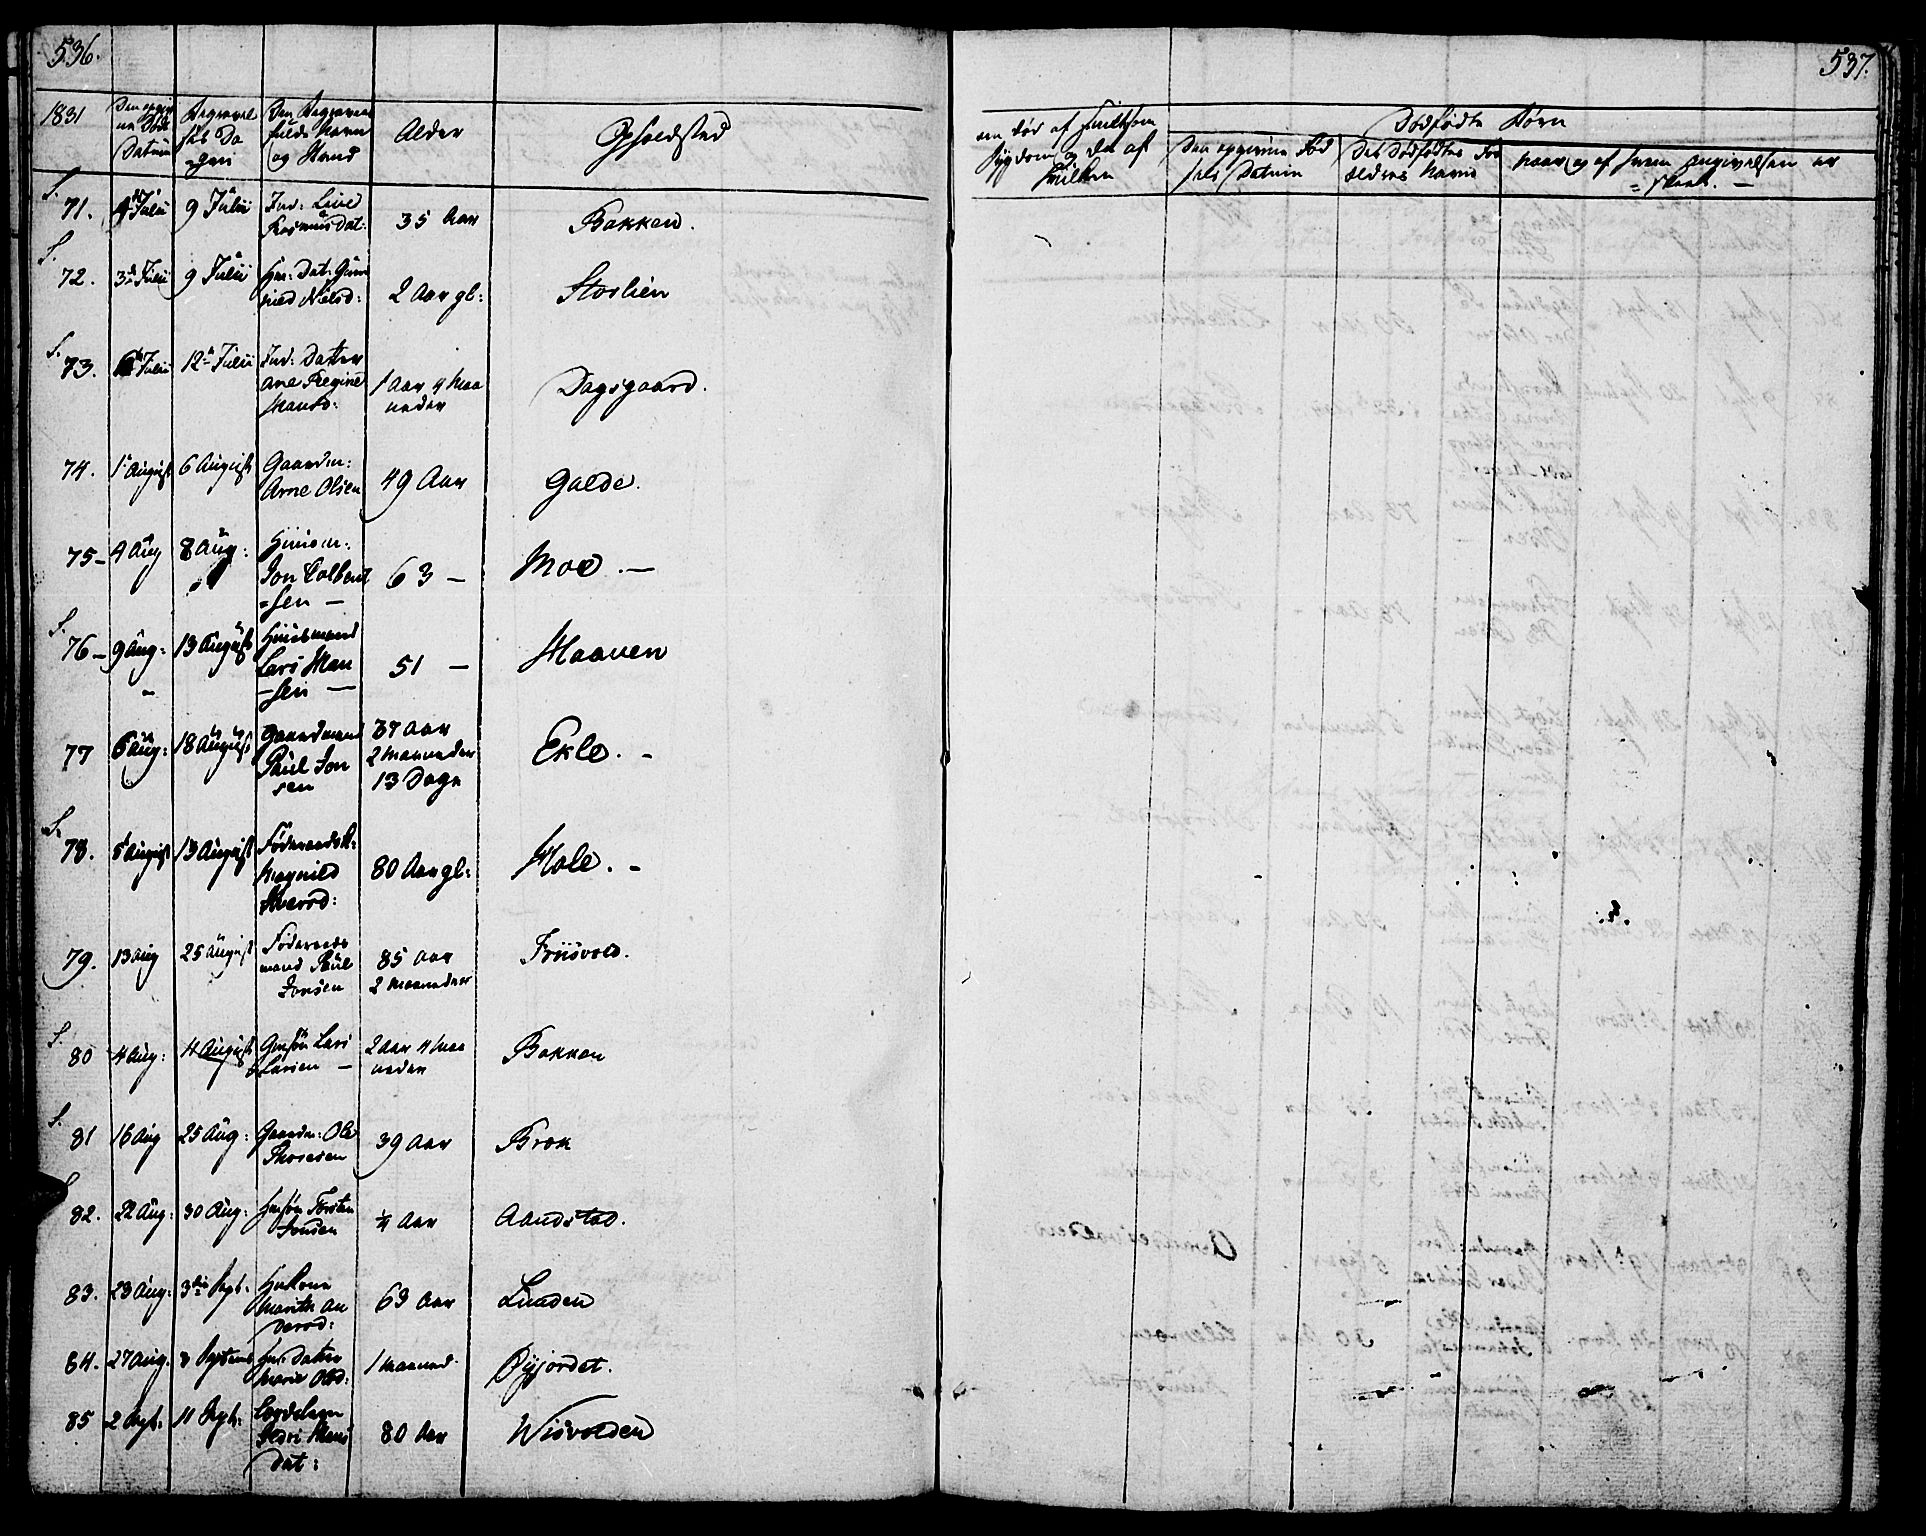 536.
1831
Den opgiv
ne Døds
Datum
Begravel
ses Da
gen
Den Begravne
fulde Navn
og Stand
Alder
Opholdsted
S.
71. 4 Julii 9 Julii Ind: Live
Rasmusdat: 35 Aar Bakken.
S.
72. 3 Julii 9 Julii Huus: Dat: Gun
hild Nielsd: 2 Aar gl: Storlien
S.
73. 6 Julii 12 Julii Ind: Datter
Ane Regine
Hansd: 1 Aar 4 Maa
neder Dagsgaard.
74. 1 August 6 August Gaardm:
Arne Olsen 49 Aar Galde.
75 - 4 Aug 8 Aug: Huusm:
Jon Colbent
=sen — 63 — Moe. —
S.
76 - 9 Aug: 13 August Huusmand
Lars Han
-sen — 51 — Haaven
77 6 Aug: 18 August Gaardmand
Paul Jon
sen 37 Aar
2 Maaneder
13 Dage Ekle. -
S.
78. 5 August 13 August Føderaadsk:
Magnild
Iversd: 80 Aar gl: Hole. -
79. 13 Aug 25 August Føderaads
mand Paul
Jonsen 85 Aar
2 Maaneder Friisvold.
S.
80 4 Aug: 4 August Gmsøn Lars
Larsen — 2 Aar 4 Maa
neder Bakken
S.
81 16 Aug 25 Aug: Gaardm: Ole
Thoresen 39 Aar Bræk
S.
82. 22 Aug: 30 Aug: Husøn Torsten
Jonsen ¼ Aar Aandstad.
83. 23 Aug: 3die Sept. Huuskone
Marith An
dersd: 63 Aar Lunden
84. 27 Aug. 8 Septemb Huus Datter
Marie Olsd: 1 Maaned. Øyjordet.
85 2 Sept. 11 Sept: Lægdslem
Siri Hans
dat: 80 Aar Wisvolden
537.
om død af hvilken
sygdom og da af
hvilken
Dødfødte Børn
Den opgivne Fød
sels Datum
Det Dødfødtes For
ældres Navne
naar og af hvem Angivelsen er
= skeet. —